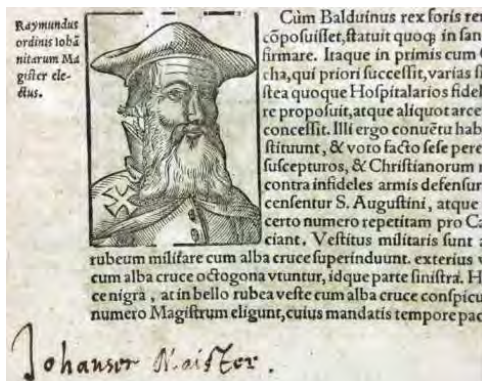 Raymundus
ordinis Iohā
nitarum Ma
gister ele-
ctus.
Cùm Balduinus rex foris re
cōposuisset, statuit quoqꝫ in san
firmare. Itaque in primis cum
cha, qui priori successit, varias
stea quoque Hospitalarios fidel
re proposuit, atque aliquot arce
concessit. Illi ergo conuētu hab
stituunt, & voto facto sese pere
suscepturos, & Christianorum
contra infideles armis defensur
censentur S. Augustini, atque
certo numero repetitam pro Ca
ciant. Vestitus militaris sunt
rubeum militare cum alba cruce superinduunt. exterius
cum alba cruce octogona vtuntur, idque parte sinistra. H
ce nigra, at in bello rubea veste cum alba cruce conspicu
numero Magistrum eligunt, cuius mandatis tempore pac
Johanser Maister.